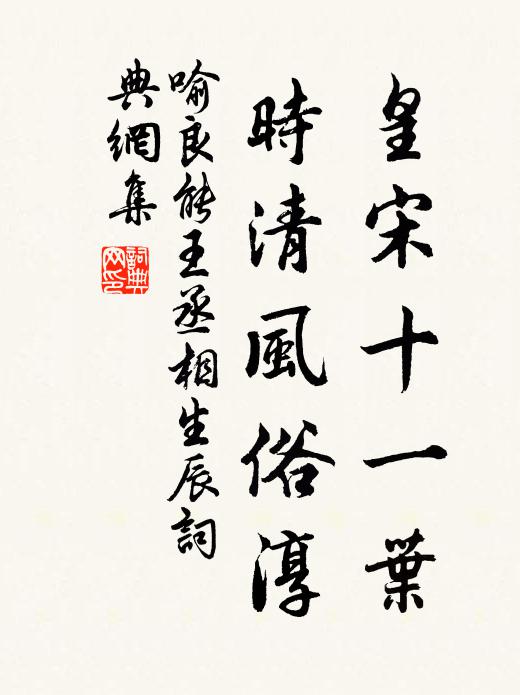 皇宋十一葉
時清風俗淳
喻良能王丞相生辰詞
典網集
詞典網印